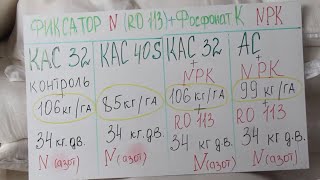 ФИКСАТОР N (RO 113) + Фосфонат К NPK
КАС 32
контроль
+
106 кг/га
34 кг.д.в.
N (азот)
КАС 40S
85 кг/га
34 кг.д.в.
N (азот)
КАС 32
+
NPK
106 кг/га
+
RO 113
34 кг.д.в.
N (азот)
АС
+
NPK
99 кг/га
+
RO 113
34 кг.д.в.
N (азот)